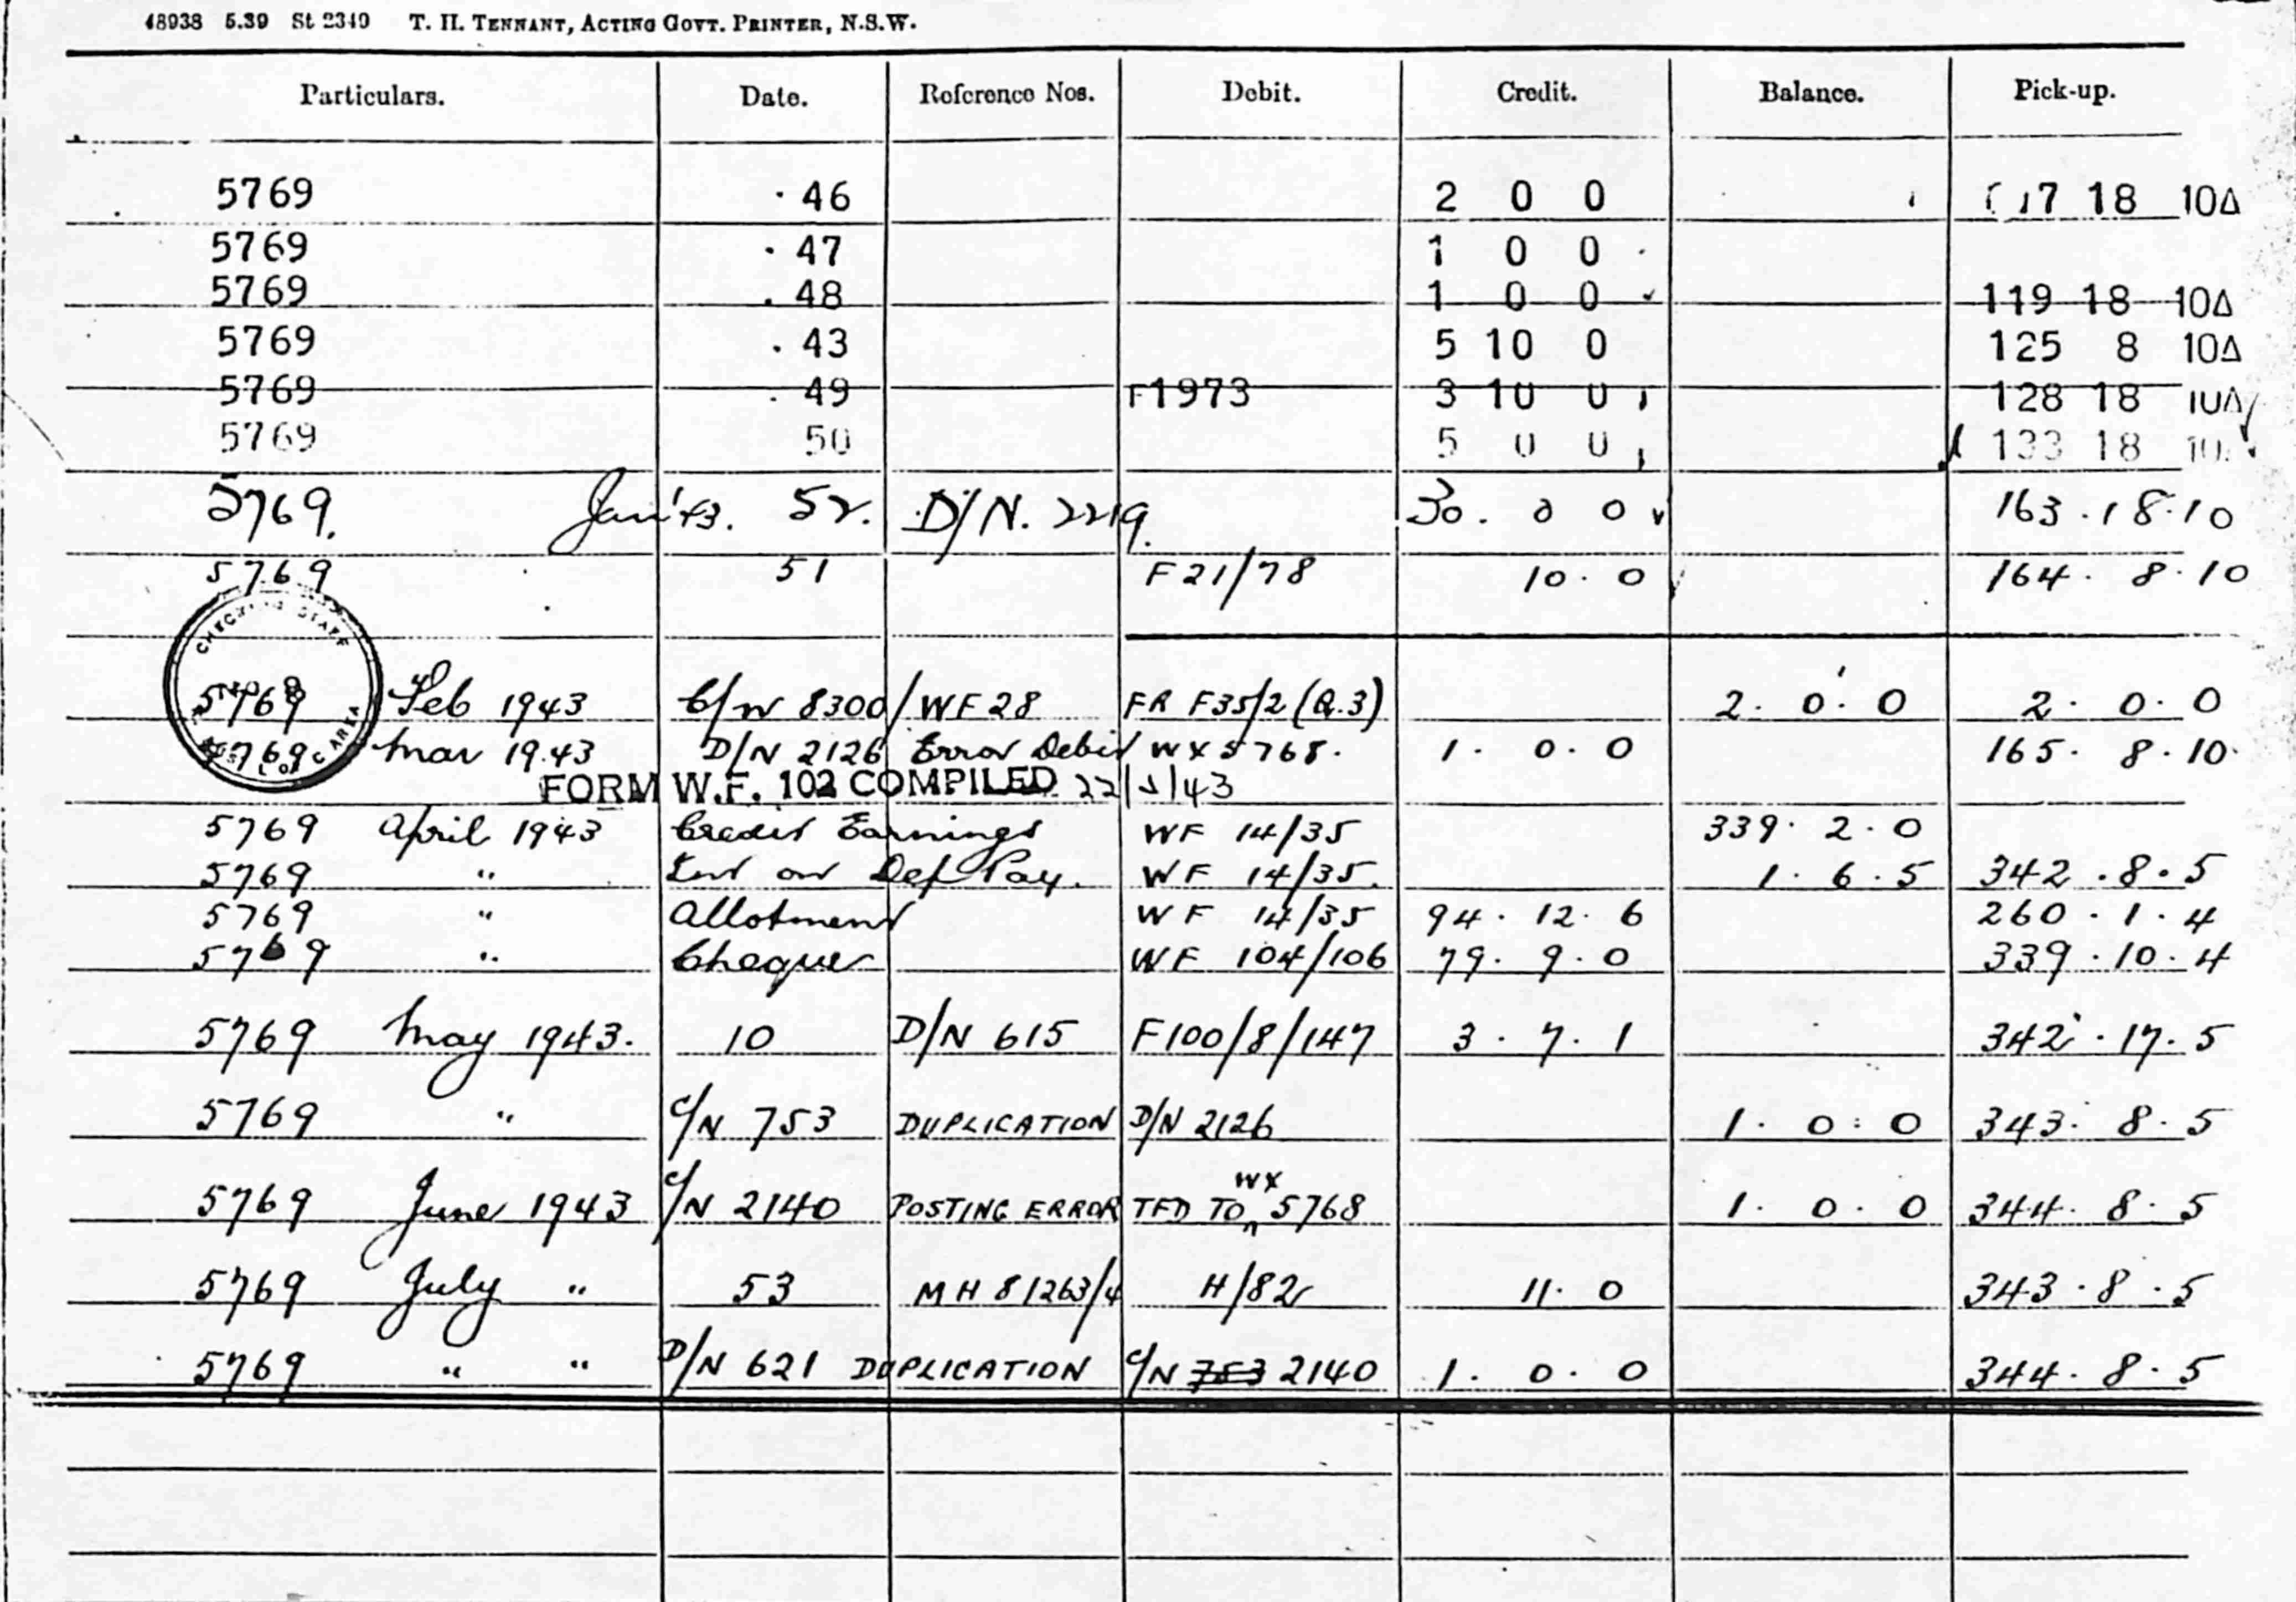 48938 5.39 St 2340 T. H. TENNANT, ACTING GOVT. PRINTER, N.S.W.
Particulars. Date. Reference Nos. Debit. Credit. Balance. Pick-up.
5769 · 46 2 0 0 17 18 10Δ
5769 · 47 1 0 0
5769 . 48 1 0 0 119 18 10Δ
5769 . 43 5 10 0 125 8 10Δ
5769 . 49 F1973 3 10 0 128 18 10Δ
5769 50 5 0 0 133 18 10
5769. Jan '43. 52. D/N. 2219. 30. 0 0 163.18.10
5769 51 F21/78 10.0 164. 8.10
CHECKING STAFF
5769 Feb 1943 C/N 8300/WF28 FR F35/2 (Q.3) 2. 0.0 2. 0.0
5769 Mar 1943 D/N 2126 Error Debit WX5768. 1. 0.0 165. 8.10.
AREA
FORM W.F. 102 COMPILED 22/5/43
5769 April 1943 Credit Earnings WF 14/35 339. 2.0
5769 " Int on Def Pay. WF 14/35. 1.6.5 342.8.5
5769 " Allotment WF 14/35 94.12.6 260.1.4
5769 " Cheque WF 104/106 79.9.0 339.10.4
5769 May 1943. 10 D/N 615 F100/8/147 3.7.1 342.17.5
5769 " C/N 753 DUPLICATION D/N 2126 1. 0:0 343. 8.5
5769 June 1943 C/N 2140 POSTING ERROR TFD TO WX 5768 1. 0.0 344. 8.5
5769 July " 53 MH 81263/4 H/82 11.0 343.8.5
5769 " " D/N 621 DUPLICATION C/N 753 2140 1. 0. 0 344. 8.5